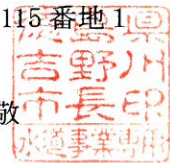 115 番地 1
敬
徳島県
吉野川
市長印
水道事業専用